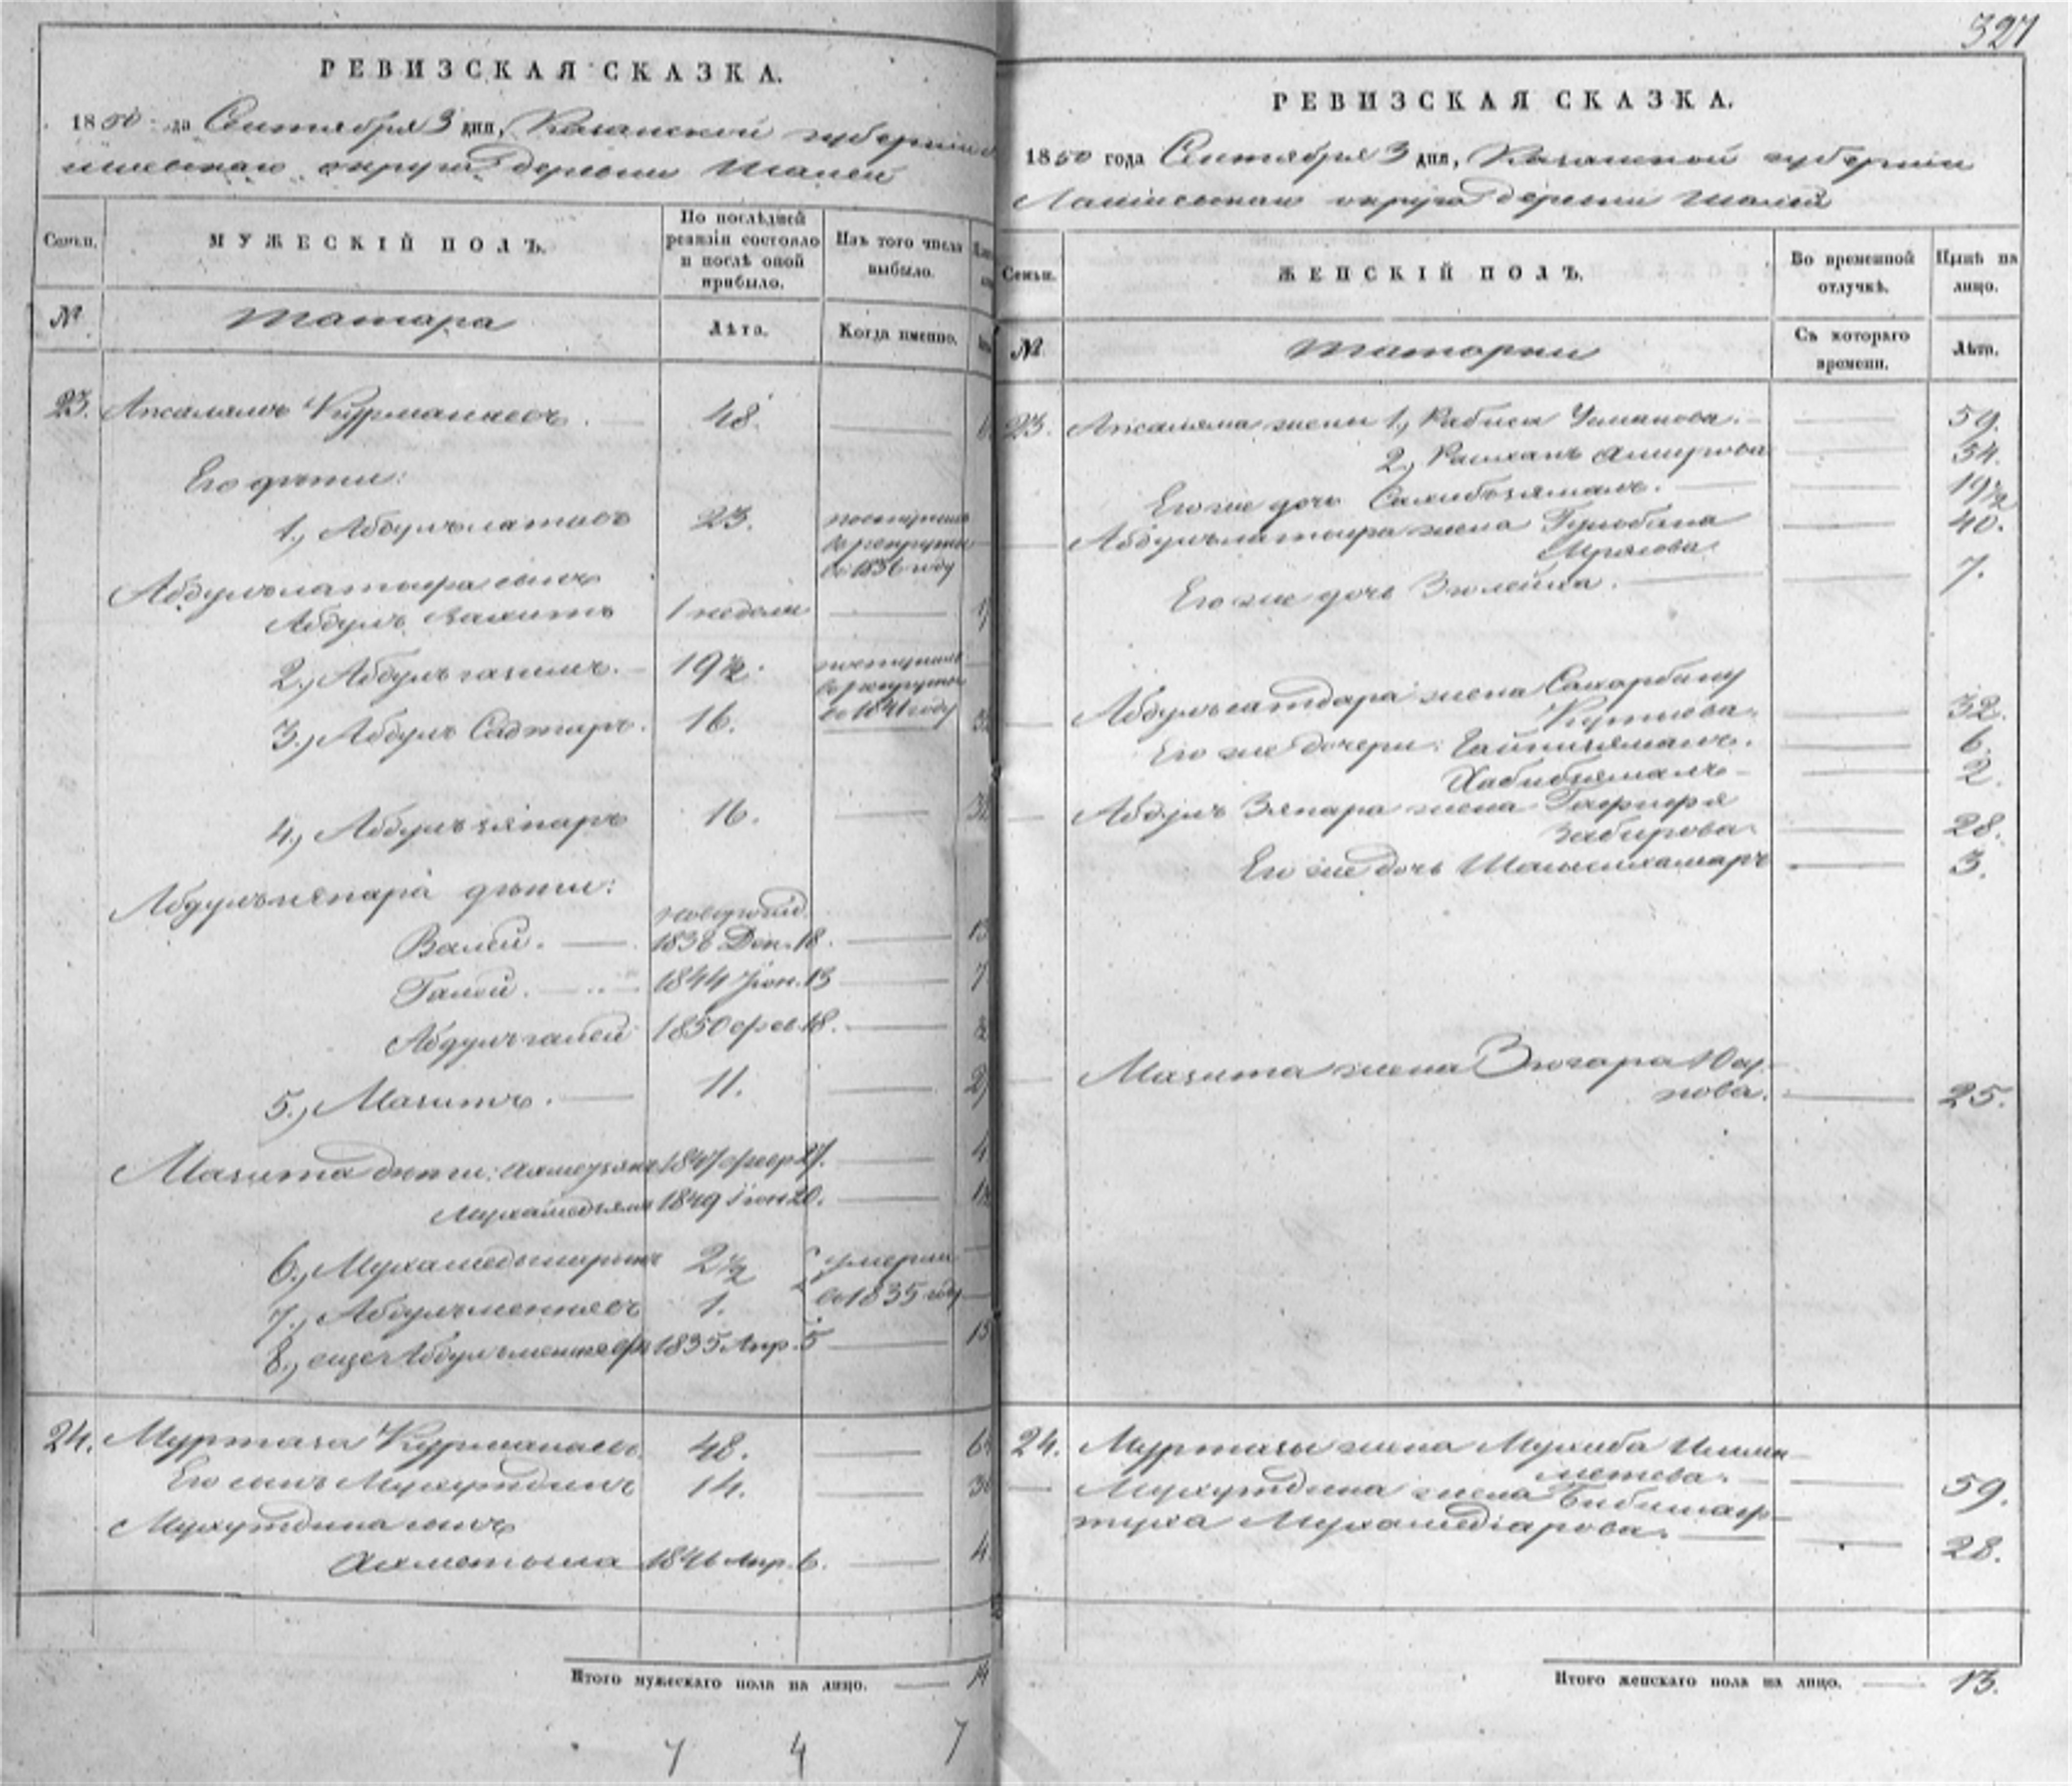 РЕВИЗСКАЯ СКАЗКА.
1850 года Сентября 3 дня, Казанской губерніи
округа деревни Шалей
Семьи. МУЖЕСКІЙ ПОЛЪ. По послѣдней ревизіи состояло и послѣ оной прибыло. Изъ того числа выбыло.
№ Татара Лѣта. Когда именно.
23. Апсалямъ Курманаевъ. 48.
Его дѣти:
1., Абдулълатыфъ 23. поступилъ
въ рекруты
въ 1836 году
Абдулълатыфа сынъ
Абдулъ Вахитъ 1 недели
2., Абдулъгазимъ. 19½. поступилъ
въ рекруты
въ 1841 году
3., Абдулъ Саттаръ. 16.
4., Абдулъзяпаръ 16.
Абдулъзяпара дѣти:
новорожд.
Валей. 1838 Дек. 18.
Галей. 1844 Іюн. 13
Абдулъгалей 1850 фев. 18.
5., Мазитъ. 11.
Мазита дѣти: Ахметзянъ 1847 февр 27.
Мухаметзянъ 1849 Іюн 20.
6., Мухамедшарыпъ 2½ умерли
7., Абдулъменнафъ 1. въ 1835 году
8., еще Абдулъменнафъ 1835 Апр. 5
24. Муртаза Курманаевъ. 48.
Его сынъ Мухутдинъ 14.
Мухутдина сынъ
Ахметьша 1846 Апр. 6.
Итого мужескаго пола на лицо. 14
7 4 7
327
РЕВИЗСКАЯ СКАЗКА.
1850 года Сентября 3 дня, Казанской губерніи
Лаишевскаго округа деревни Шалей
Семьи. ЖЕНСКІЙ ПОЛЪ. Во временной отлучкѣ. Нынѣ на лицо.
№ Татарки Съ котораго времени. Лѣта.
23. Апсаляма жены 1, Рабиса Усманова. 59.
2, Амирова 54.
Его же дочь Сахибзямалъ. 19½
Абдулълатыфа жена Гульбана 40.
Его же дочь Зюлейха. 7.
Абдулъсаттара жена Сахарбану
Кутыева. 32.
Его же дочери: Гайнизямалъ. 6.
Хабибзямалъ 2.
Абдулъ Зяпара жена
Забирова. 28.
Его же дочь Шамсикамаръ 3.
Мазита жена Зюгара Юсу-
пова. 25.
24. Муртазы жена Мухиба Ишим-
метева. 59.
Мухутдина жена Бибишаф-
туха Мухамедіарова. 28.
Итого женскаго пола на лицо. 13.